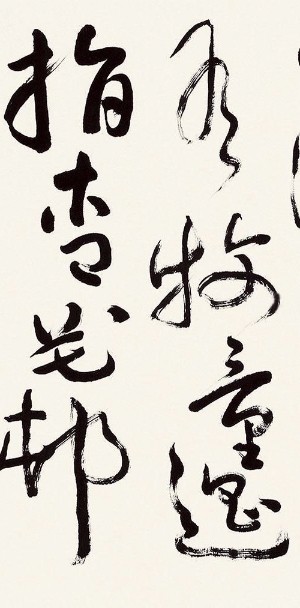 有牧童遥
指杏花邨